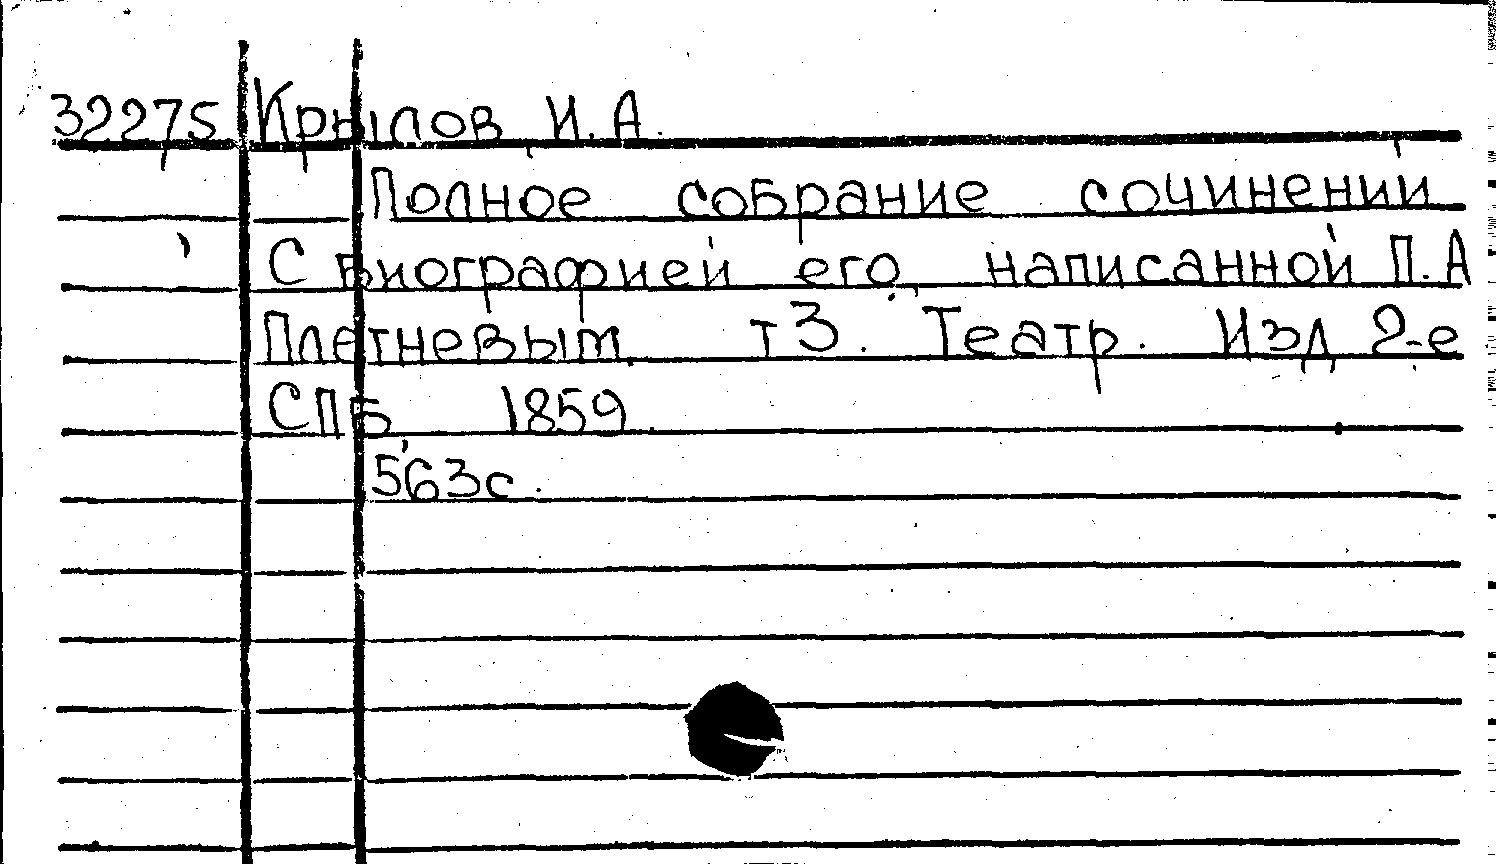 32275 Крылов И.А.
Полное собрание сочинений
С биографией его, написанной П.А
Плетневым. т 3. Театр. Изд 2-е
СПБ 1859.
563с.